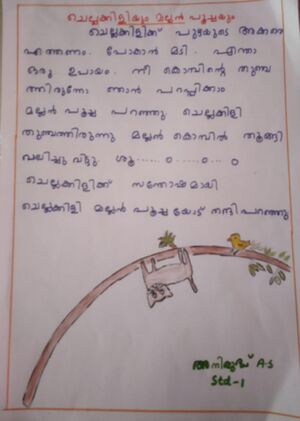 ചെല്ലക്കിളിയും മല്ലൻ പൂച്ചയും
ചെല്ലക്കിളിക്ക് പുഴയുടെ അക്കരെ
എത്തണം. പോകാൻ മടി. എന്താ
ഒരു ഉപായം. നീ കൊമ്പിന്റെ തുമ്പ
ത്തിരുന്നോ ഞാൻ പറപ്പിക്കാം
മല്ലൻ പൂച്ച പറഞ്ഞു ചെല്ലക്കിളി
തുമ്പത്തിരുന്നു മല്ലൻ കൊമ്പിൽ തൂങ്ങി
വലിച്ചു വിട്ടു. ശൂ...... ഠ ....ഠ ... ഠ
ചെല്ലക്കിളിക്ക് സന്തോഷമായി
ചെല്ലക്കിളി മല്ലൻ പൂച്ചയോട് നന്ദി പറഞ്ഞു
അനിരുദ്ധ് A.S
Std-1